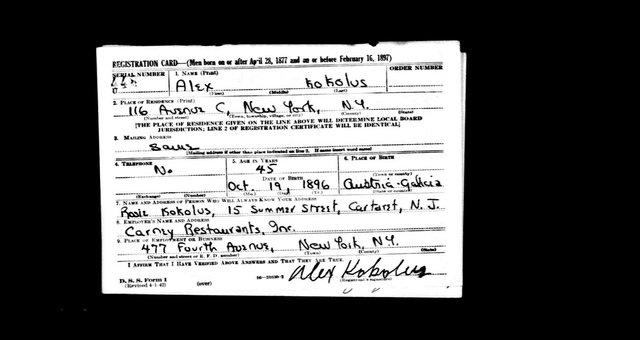 REGISTRATION CARD—(Men born on or after April 28, 1877 and on or before February 16, 1897)
SERIAL NUMBER 1. NAME (Print) ORDER NUMBER
Alex Kokolus
(First) (Middle) (Last)
2. PLACE OF RESIDENCE (Print)
116 Avenue C, New York, N.Y.
(Number and street) (Town, township, village, or city) (County) (State)
[THE PLACE OF RESIDENCE GIVEN ON THE LINE ABOVE WILL DETERMINE LOCAL BOARD
JURISDICTION; LINE 2 OF REGISTRATION CERTIFICATE WILL BE IDENTICAL]
3. MAILING ADDRESS
Same
[Mailing address if other than place indicated on line 2. If same insert word same]
4. TELEPHONE 5. AGE IN YEARS 6. PLACE OF BIRTH
No 45
DATE OF BIRTH (Town or county)
Oct. 19, 1896 Austria-Galicia
(Exchange) (Number) (Mo.) (Day) (Yr.) (State or country)
7. NAME AND ADDRESS OF PERSON WHO WILL ALWAYS KNOW YOUR ADDRESS
Rosie Kokolus, 15 Summer Street, Cartaret, N.J.
8. EMPLOYER'S NAME AND ADDRESS
Carney Restaurants, Inc.
9. PLACE OF EMPLOYMENT OR BUSINESS
477 Fourth Avenue, New York, N.Y.
(Number and street or R. F. D. number) (Town) (County) (State)
I AFFIRM THAT I HAVE VERIFIED ABOVE ANSWERS AND THAT THEY ARE TRUE.
D. S. S. Form 1
(Revised 4-1-42) (over) Alex Kokolus
(Registrant's signature)